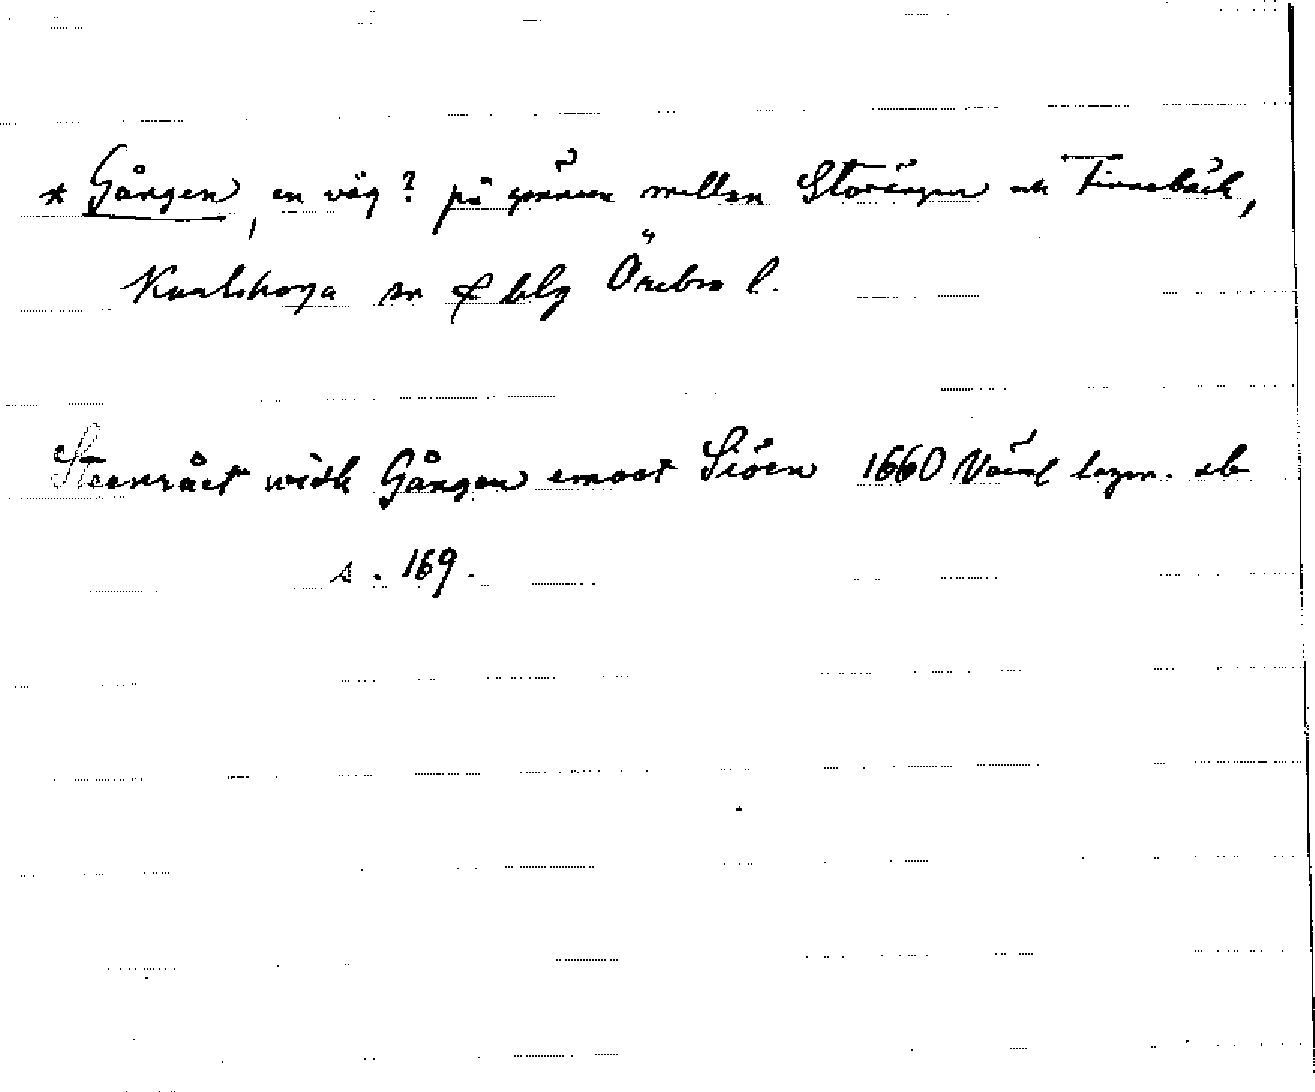 * Gången, en väg? på gränsen mellan Storängen och Finnebäck,
Karlskoga sn o blg Örebro l.
Steenrået widh Gången emoot Siöen 1660 Värml lagm. db
s. 169.